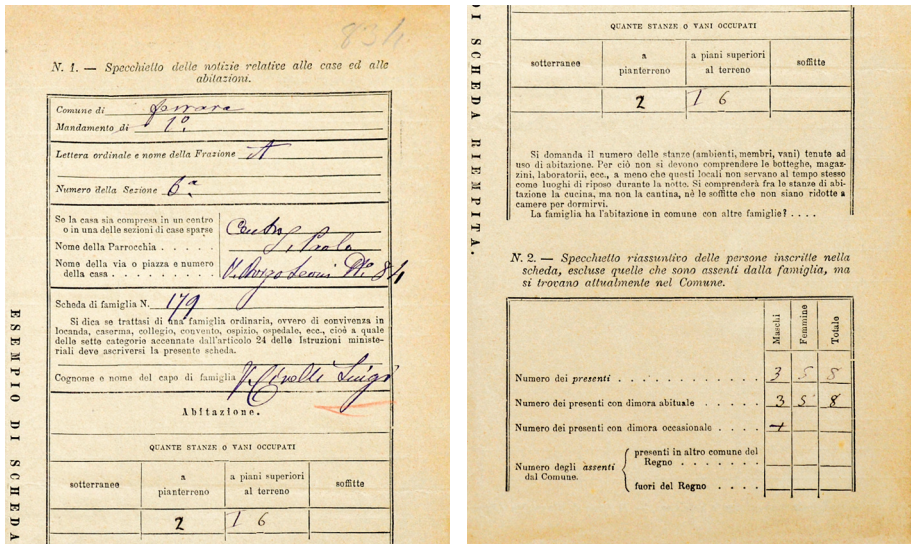 834
N. 1. — Specchietto delle notizie relative alle case ed alle
abitazioni.
Comune di Ferrara
Mandamento di 1º
Lettera ordinale e nome della Frazione A
Numero della Sezione 6ª
Se la casa sia compresa in un centro
o in una delle sezioni di case sparse Centro
Nome della Parrocchia . . . . . S. Paolo
Nome della via o piazza e numero
della casa . . . . . . . . . 84
Scheda di famiglia N. 179
Si dica se trattasi di una famiglia ordinaria, ovvero di convivenza in
locanda, caserma, collegio, convento, ospizio, ospedale, ecc., cioè a quale
delle sette categorie accennate dall'articolo 24 delle Istruzioni ministe-
riali deve ascriversi la presente scheda.
Cognome e nome del capo di famiglia Luigi
Abitazione.
QUANTE STANZE O VANI OCCUPATI
sotterranee
a
pianterreno
a piani superiori
al terreno
soffitte
2 1 6
ESEMPIO DI SCHEDA
QUANTE STANZE O VANI OCCUPATI
sotterranee
a
pianterreno
a piani superiori
al terreno
soffitte
2 1 6
Si domanda il numero delle stanze (ambienti, membri, vani) tenute ad
uso di abitazione. Per ciò non si devono comprendere le botteghe, magaz-
zini, laboratorii, ecc., a meno che questi locali non servano al tempo stesso
come luoghi di riposo durante la notte. Si comprenderà fra le stanze di abi-
tazione la cucina, ma non la cantina, nè le soffitte che non siano ridotte a
camere per dormirvi.
La famiglia ha l'abitazione in comune con altre famiglie? . . . .
N. 2. — Specchietto riassuntivo delle persone inscritte nella
scheda, escluse quelle che sono assenti dalla famiglia, ma
si trovano attualmente nel Comune.
Maschi
Femmine
Totale
Numero dei presenti . . . . . . . . . . . . 3 5 8
Numero dei presenti con dimora abituale . . . . . 3 5 8
Numero dei presenti con dimora occasionale . . . .
Numero degli assenti
dal Comune.
presenti in altro comune del
Regno . . . . . . .
fuori del Regno . . . .
DI SCHEDA RIEMPITA.